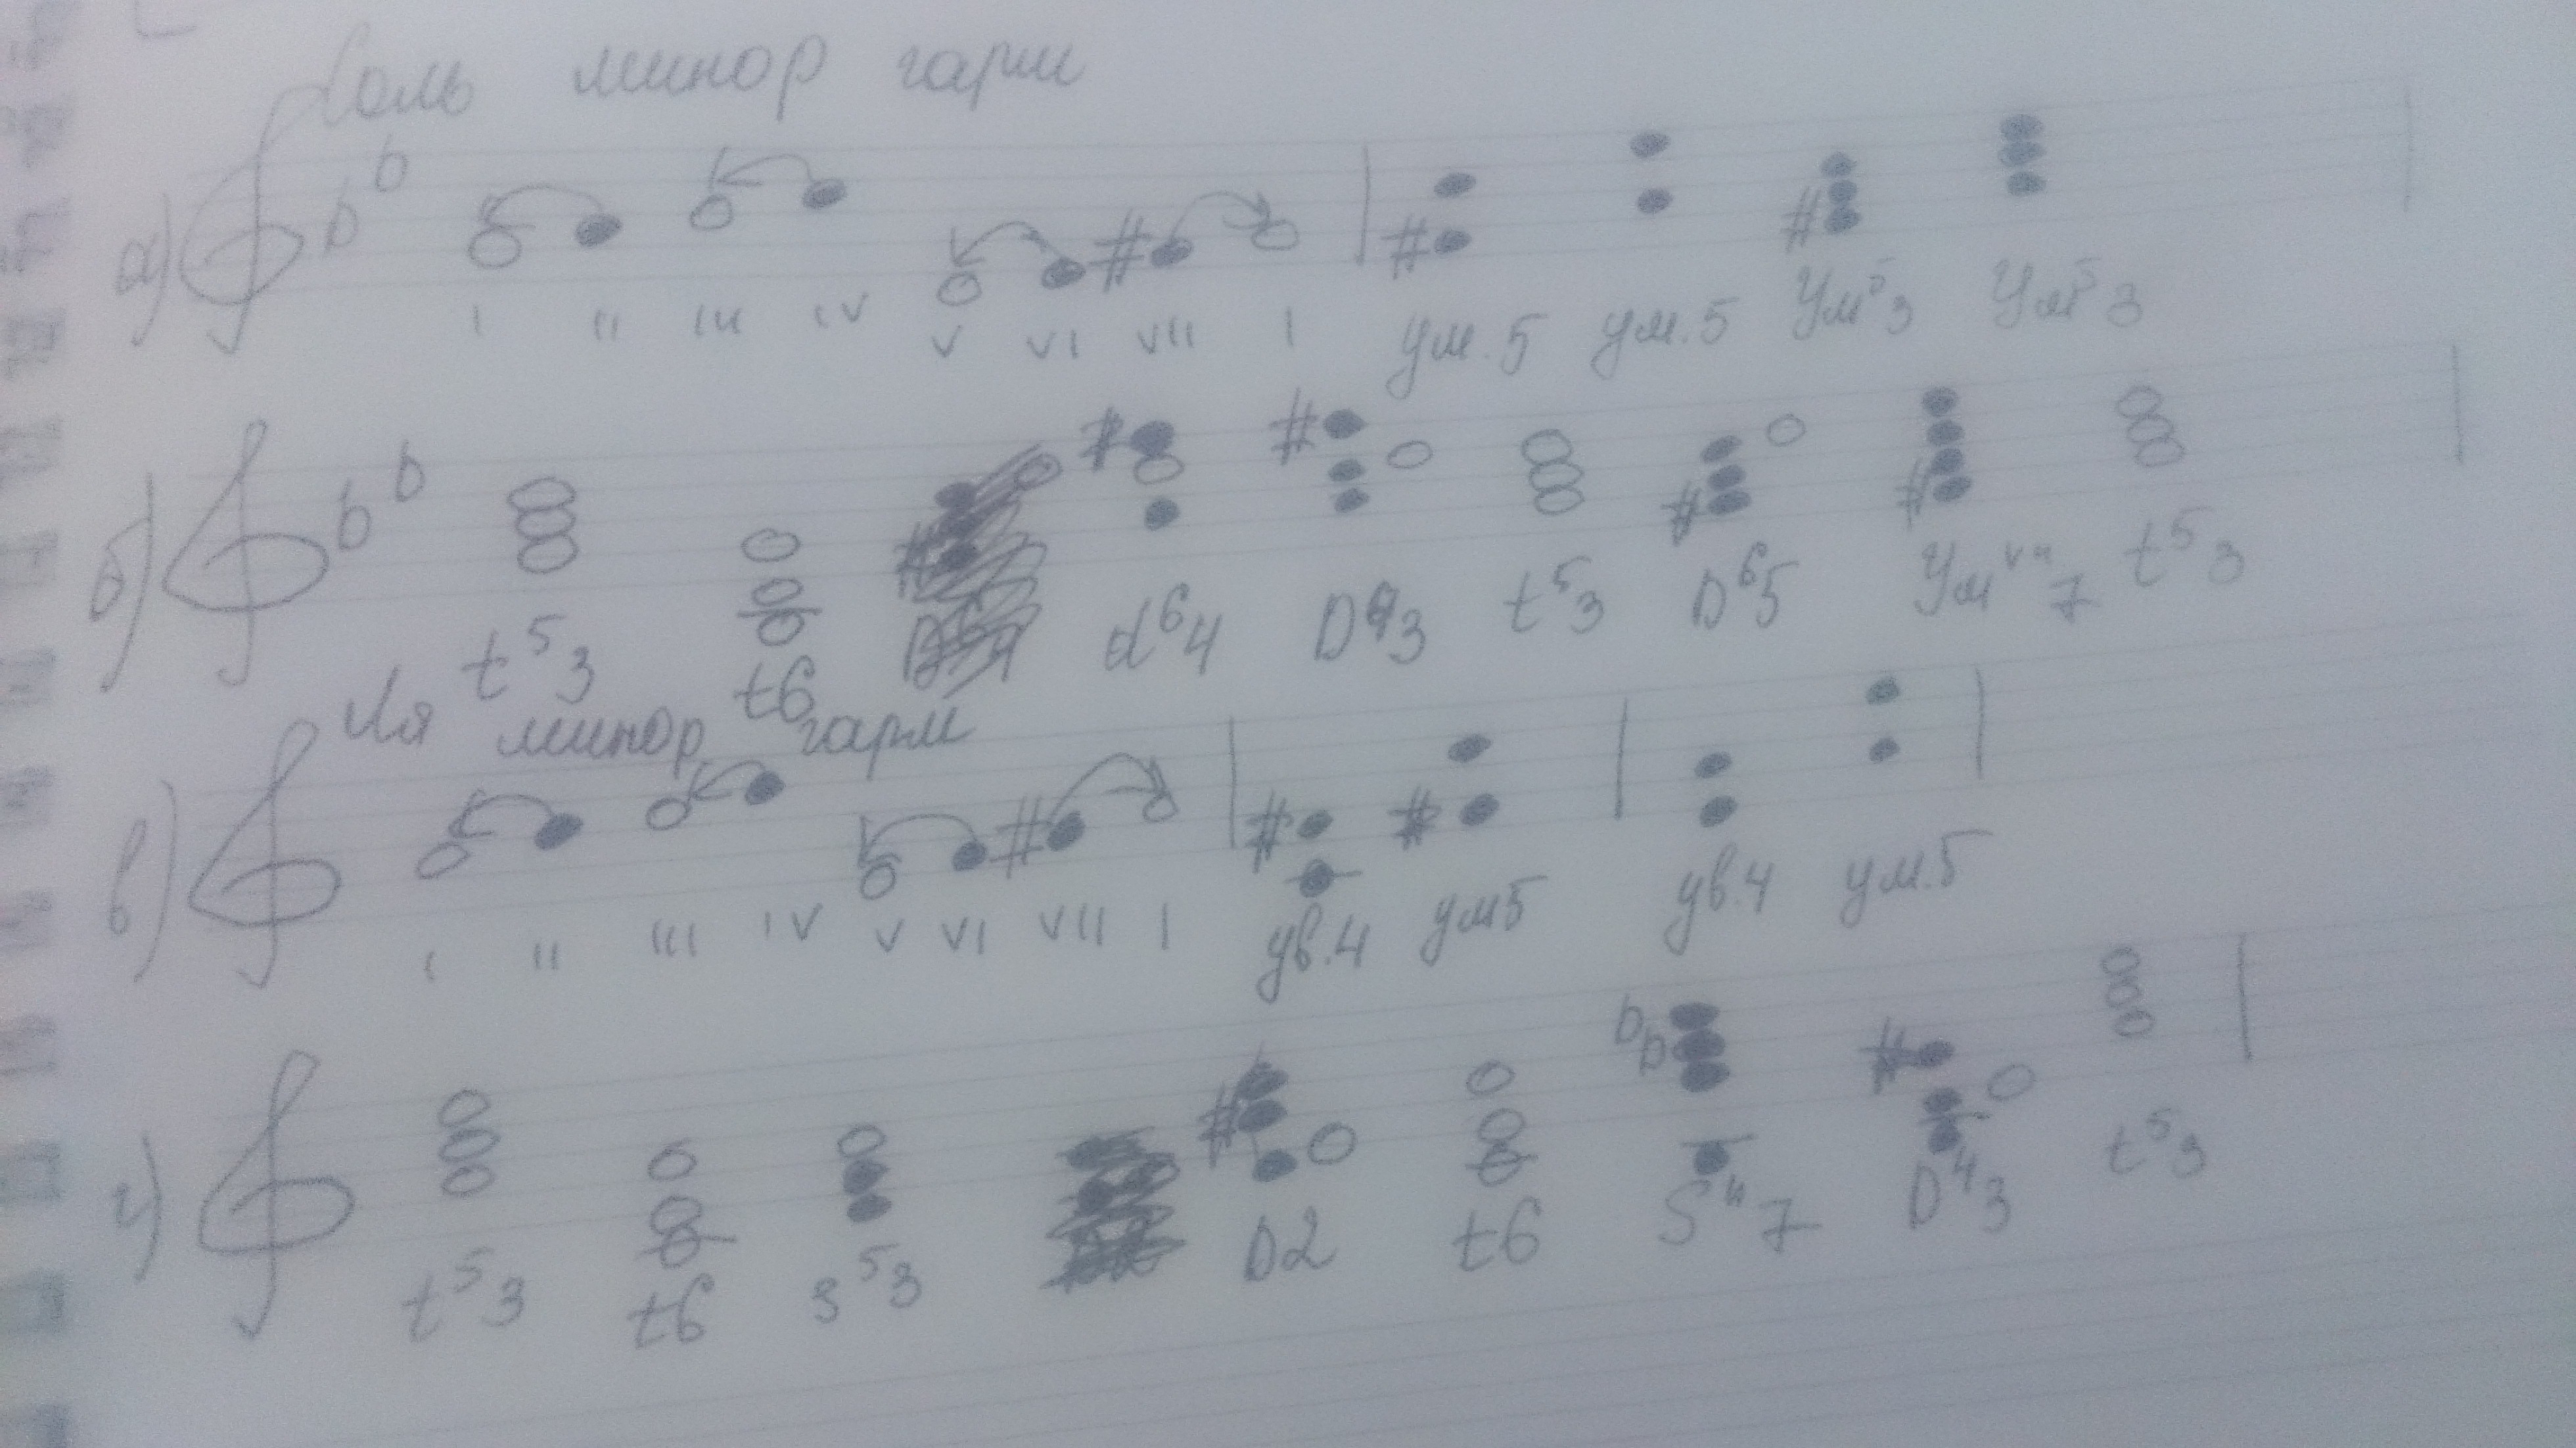 Соль минор гарм
а) I II III IV V VI VII I ум.5 ум.5 Ум⁵3 Ум⁵3
б) t⁵3 t6 d⁶4 D⁴3 t⁵3 D⁶5 Умᵛᴵᴵ7 t⁵3
Ля минор гарм
в) I II III IV V VI VII I ув.4 ум5 ув.4 ум.5
г) t⁵3 t6 s⁵3 D2 t6 Sᴵᴵ7 D⁴3 t⁵3